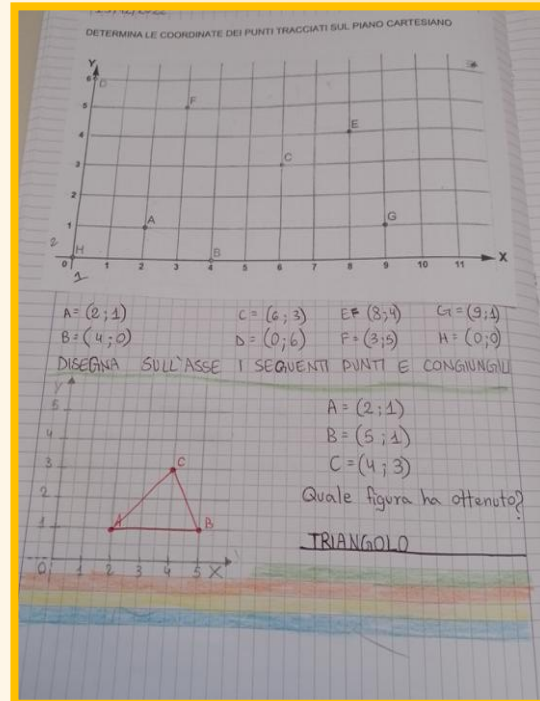 DETERMINA LE COORDINATE DEI PUNTI TRACCIATI SUL PIANO CARTESIANO
Y
6 D
5 F
4 E
3 C
2
1 A G
2
H B X
0 1 2 3 4 5 6 7 8 9 10 11
1
A=(2;1) C=(6;3) E=(8;4) G=(9;1)
B=(4;0) D=(0;6) F=(3;5) H=(0;0)
DISEGNA SULL'ASSE I SEGUENTI PUNTI E CONGIUNGILI
Y
5
4
3 C
2
1 A B
0 1 2 3 4 5 X
A=(2;1)
B=(5;1)
C=(4;3)
Quale figura ha ottenuto?
TRIANGOLO